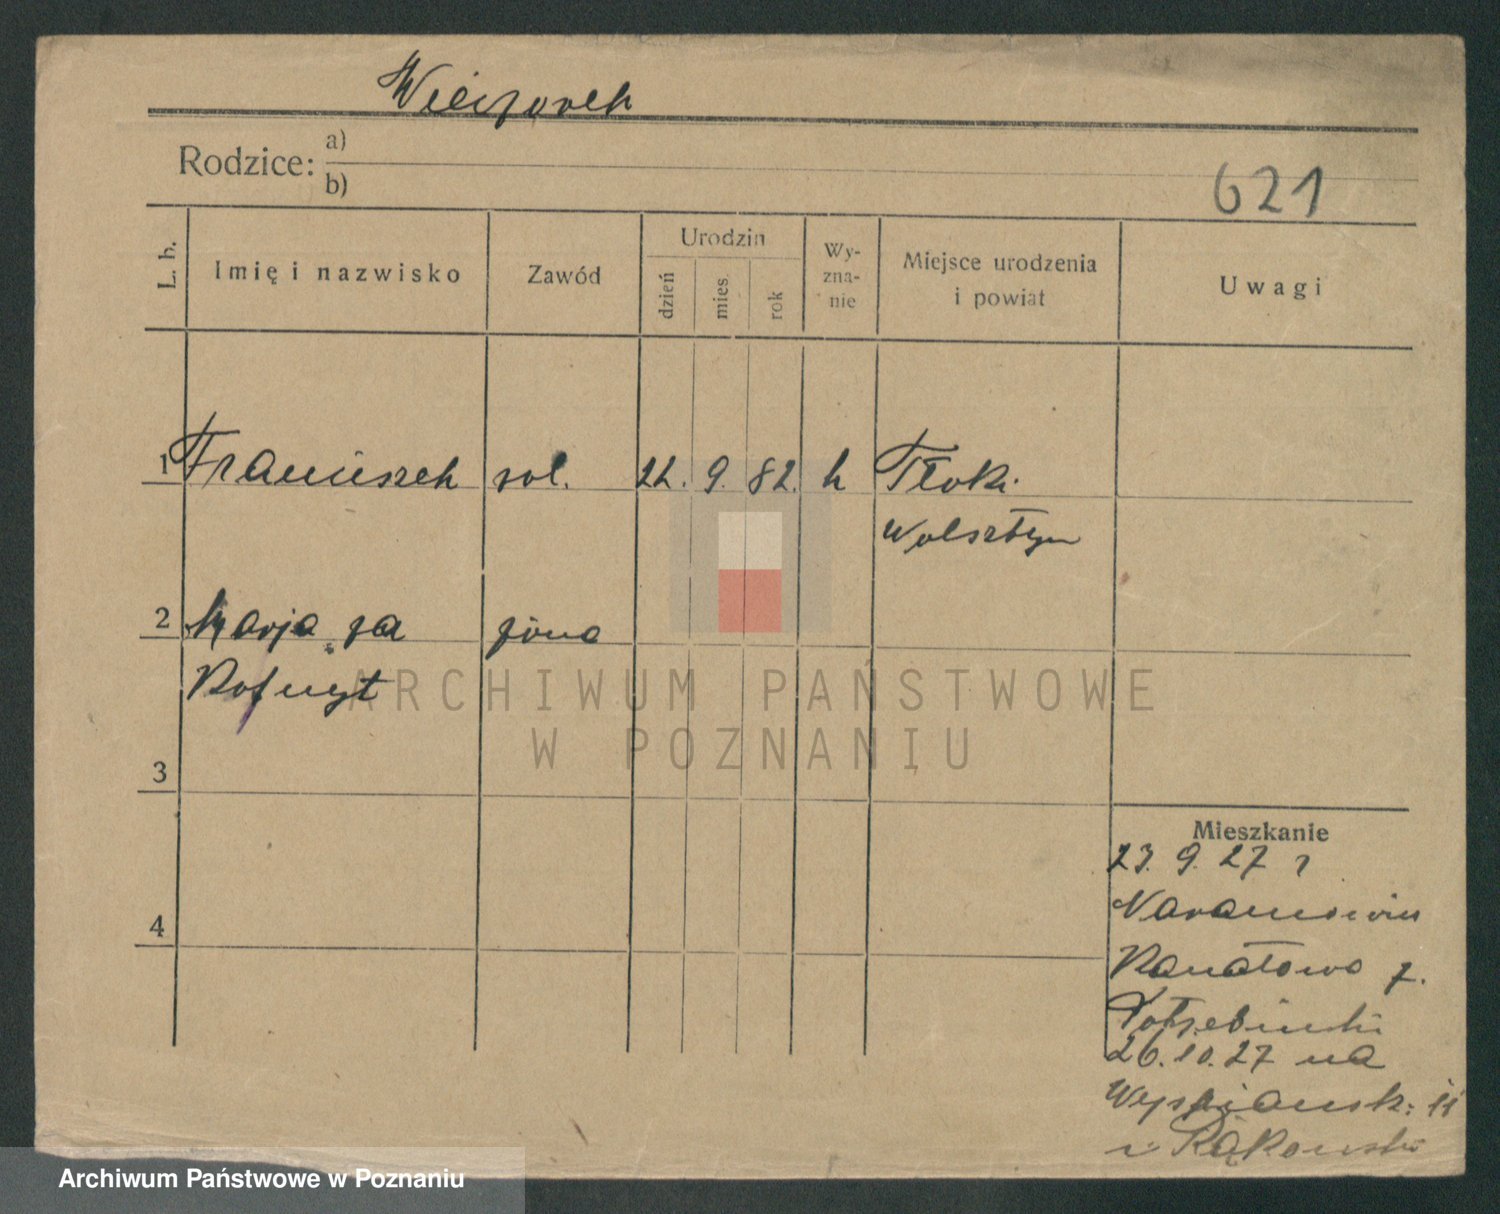 Wieczorek
Rodzice: a)
b)
621
L. b.
Imię i nazwisko
Zawód
Urodzin
dzień
mies.
rok
Wy-
zna-
nie
Miejsce urodzenia
i powiat
Uwagi
1 Franciszek rol. 22. 9. 82. k Tłoki
Wolsztyn
2 Marja za żona
ARCHIWUM PAŃSTWOWE
W POZNANIU
3
Mieszkanie
23. 9. 27 z
Naramowice
4
26.10.27 na
Wyspiańsk. 11
Archiwum Państwowe w Poznaniu